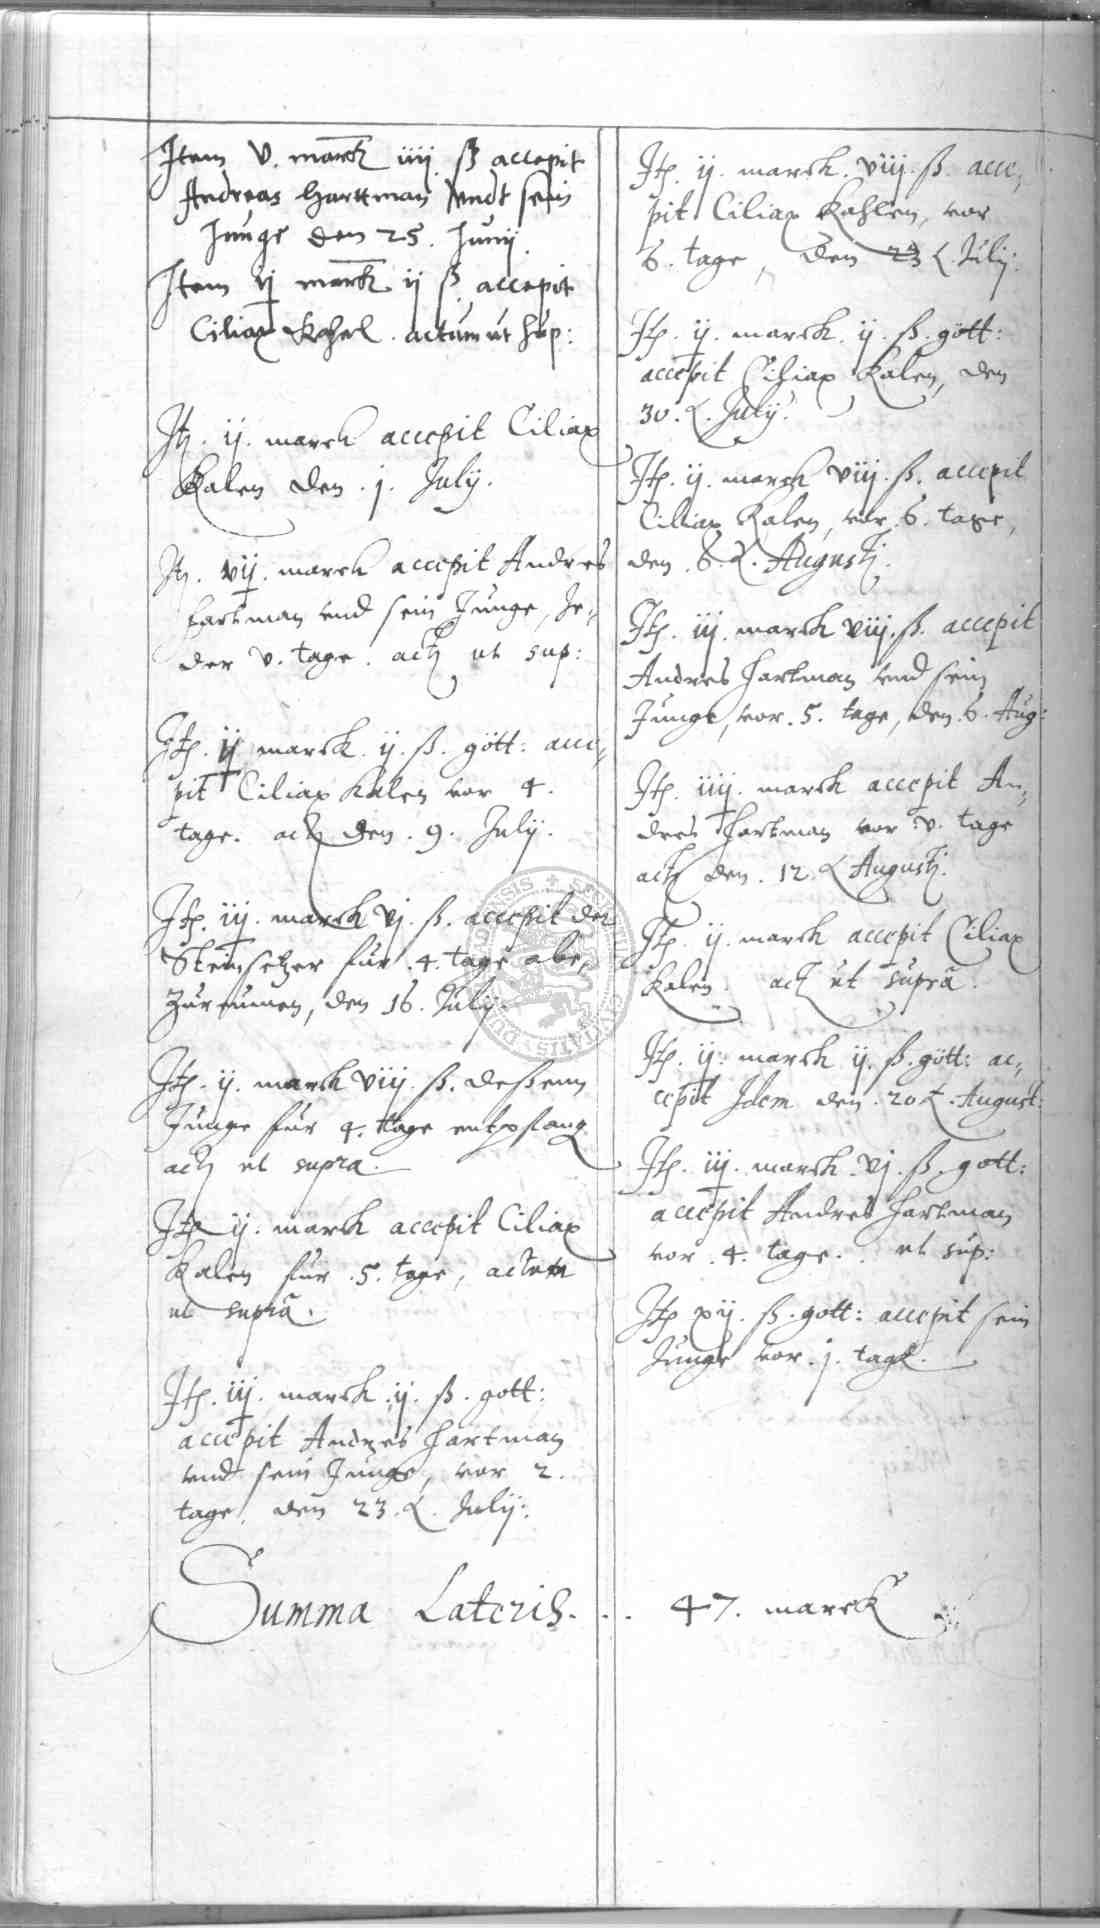 Item v. marck iiij ß accepit
Andreas Harttman vndt sein
Junge den 25. Junij
Item ij marck ij ß accepit
Ciliax Kahel. actum ut sup:
Itz. ij. marck accepit Ciliax
Kalen den .j. July.
Itz. vij. marck accepit Andres
Hartman vnd sein Junge, Je-
der v. tage. actz ut sup:
Itp. ij marck. ij. ß. gött: acce-
pit Ciliax Kalen vor 4.
tage. actz den .9. July.
Itp. iij. marck vj. ß. accepit der
Steinsetzer für .4. tage abe-
Zureumen, den 16. July.
Itp. ij. marck viij. ß. deßenn
Junge für 4. tage entpfang
actz ut supra.
Itp ij. marck accepit Ciliax
Kalen für .5. tage, actum
ut suprà.
Itp. iij. marck ij. ß. gott:
accepit Andres Hartman
vnd sein Junge, vor 2.
tage, den 23. July:
Itp. ij. marck. viij. ß. acce-
pit Ciliax Kahlen, vor
6. tage, den July:
Itp. ij. marck ij. ß. gött:
accepit Ciliax Kalen, den
30. July.
Itp. ij. marck viij. ß. accepit
Ciliax Kalen, vor .6. tage,
den .6. Augustj.
Itp. iij. marck viij. ß. accepit
Andres Hartman vnd sein
Junge, vor .5. tage, den .6. Aug:
Itp. iiij. marck accepit An-
dres Hartman vor .v. tage
actz den .12. Augustj.
Itp. ij. marck accepit Ciliax
Kalen. actz ut suprà.
Itp. ij. marck ij. ß. gött: ac-
cepit Idem den .20. August:
Itp. iij. marck vj. ß. gott:
accepit Andres Hartman
vor .4. tage. ut sup:
Itp xij. ß. gott: accepit sein
Junge vor .j. tage.
Summa Lateris. . . 47. marck